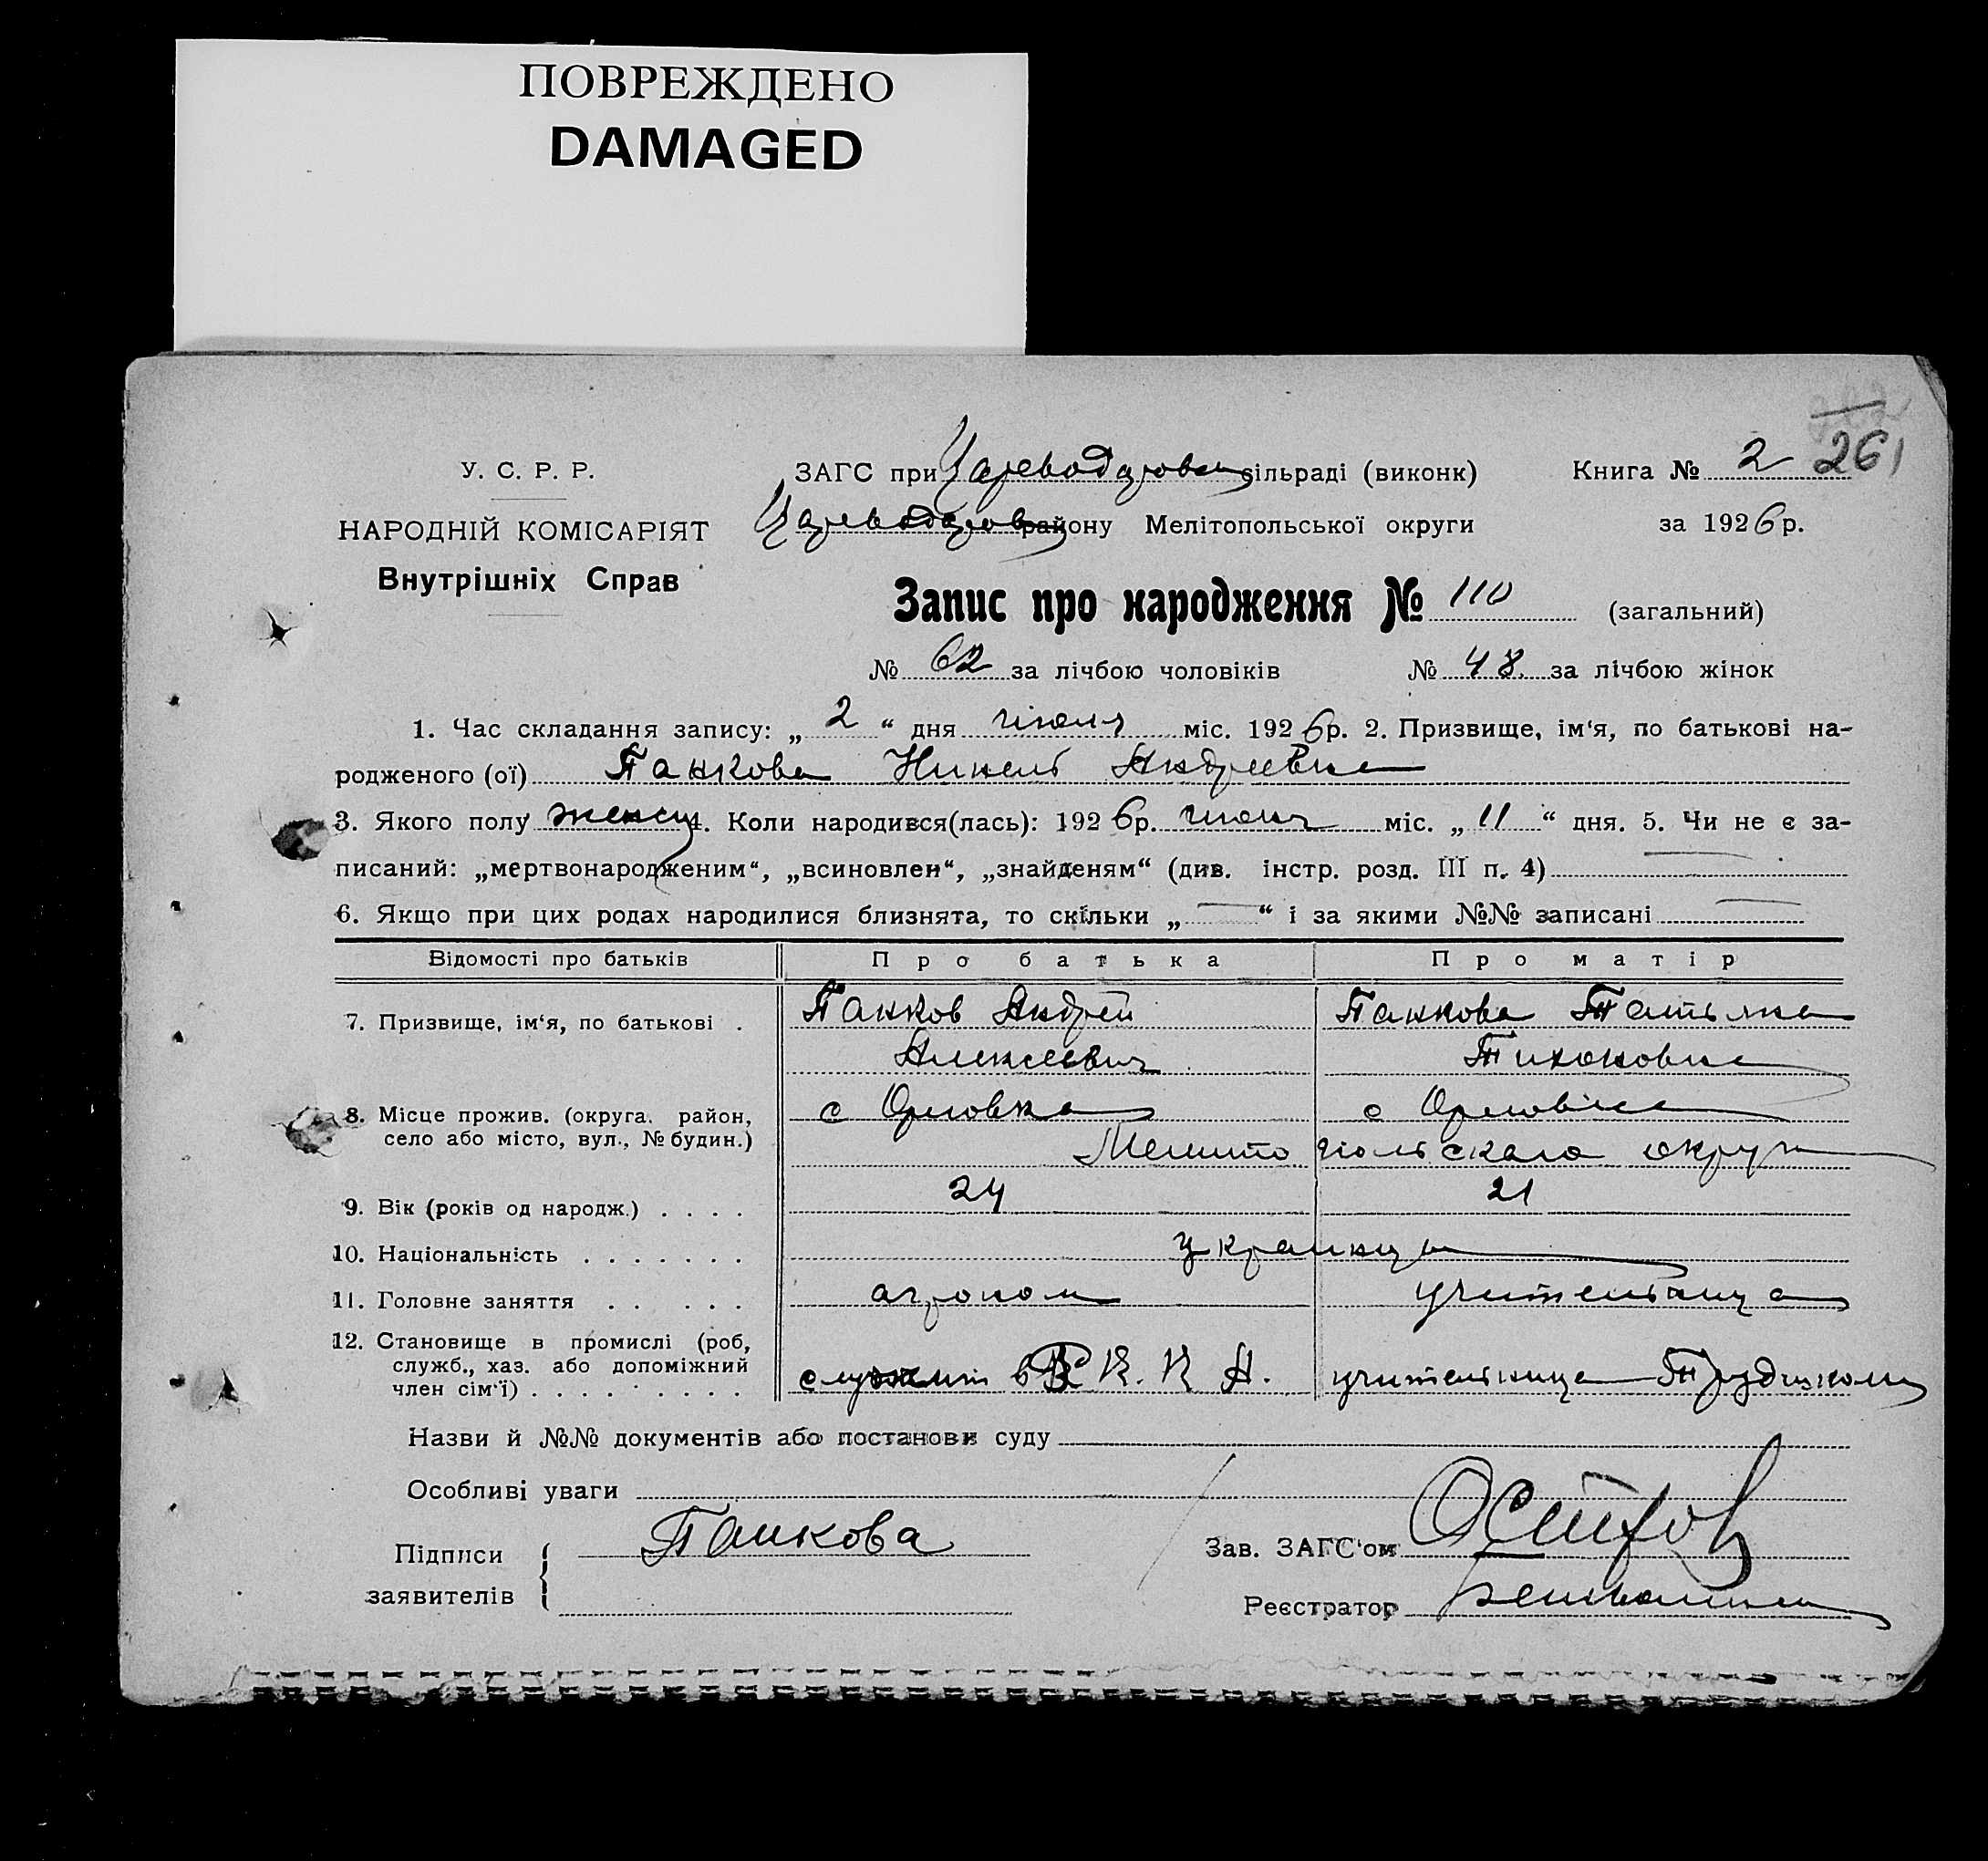 ПОВРЕЖДЕНО
DAMAGED
261
У. С. Р. Р.
НАРОДНІЙ КОМІСАРІЯТ
Внутрішніх Справ
ЗАГС при Царево сільраді (виконк) Книга № 2
району Мелітопольської округи за 1926 р.
Запис про народження № 110 (загальний)
№ 62 за лічбою чоловіків № 48 за лічбою жінок
1. Час складання запису: „ 2 “ дня июля міс. 1926 р. 2. Призвище, ім‘я, по батькові на-
родженого (ої) Панкова Нинель Андреевна
3. Якого полу женск 4. Коли народився(лась): 1926 р. міс. „ 11 “ дня. 5. Чи не є за-
писаний: „мертвонародженим“, „всиновлен“, „знайденям“ (див. інстр. розд. III п. 4)
6. Якщо при цих родах народилися близнята, то скільки „ “ і за якими №№ записані
Відомості про батьків Про батька Про матір
7. Призвище, ім‘я, по батькові . Панков Андрей Панкова Татьяна
Алексеевич Тихоновна
8. Місце прожив. (округа, район, с Орловка с Орловка
село або місто, вул., № будин.) Мелитопольского округа
9. Вік (років од народж.) . . . . 24 21
10. Національність . . . . . . . украинцы
11. Головне заняття . . . . . агроном учительница
12. Становище в промислі (роб,
служб., хаз. або допоміжний
член сім‘ї) . . . . . . . . . служит в Р К. К А. учительница Трудшколы
Назви й №№ документів або постанови суду
Особливі уваги
Підписи Панкова Зав. ЗАГС‘ом Осипов
заявителів Реєстратор